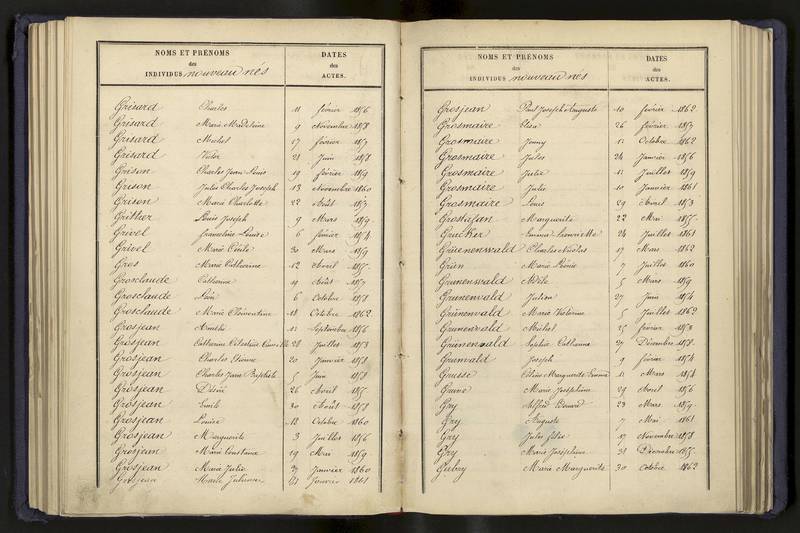 NOMS ET PRÉNOMS
des
INDIVIDUS nouveau nés
DATES
des
ACTES.
Grisard Charles 11 février 1856
Grisard Marie Madeleine 9 Novembre 1858
Grisard Michel 17 février 1857
Grisard Victor 21 Juin 1858
Grison Charles Jean Louis 19 février 1859
Grison Jules Charles Joseph 13 Novembre 1860
Grison Marie Charlotte 22 Août 1857
Grither Louis Joseph 9 Mars 1859
Grivel Louise 6 février 1854
Grivel Marie Cécile 30 Mars 1859
Gros Marie Catherine 12 Avril 1855
Grosclaude Catherine 19 Août 1857
Grosclaude Léon 6 Octobre 1858
Grosclaude Marie Clémentine 18 Octobre 1862
Grosjean 11 Septembre 1856
Grosjean Catherine Célestine Camille 28 Juillet 1853
Grosjean Charles Etienne 20 Janvier 1858
Grosjean Charles Jean Baptiste 5 Juin 1858
Grosjean Désiré 26 Avril 1855
Grosjean Emile 30 Août 1858
Grosjean Louise 18 Octobre 1860
Grosjean Marguerite 3 Juillet 1856
Grosjean Marie Constance 19 Mai 1859
Grosjean Marie Julie Janvier 1860
Grosjean Marie Julienne 21 Janvier 1861
NOMS ET PRÉNOMS
des
INDIVIDUS nouveau nés
DATES
des
ACTES.
Grosjean Paul Joseph Auguste 10 février 1862
Grosmaire Elisa 26 février 1857
Grosmaire Jenny 11 Octobre 1862
Grosmaire Jules 24 Janvier 1856
Grosmaire Julie 11 Juillet 1859
Grosmaire Julie 10 Janvier 1861
Grosmaire Louis 29 Avril 1853
Grostefan Marguerite 22 Mai 1855
Grucker Emma Henriette 24 Juillet 1861
Grüenenwald Charles Nicolas 17 Mars 1862
Grün Marie Léonie 7 Juillet 1860
Grunenwald Adèle 5 Mars 1859
Grünenwald Julien 27 Juin 1854
Grünenwald Marie Victorine 5 Juillet 1862
Grunenwald Michel 25 février 1853
Grünenwald Sophie Catherine 27 Décembre 1858
Grunwald Joseph 9 février 1854
Grusse Céline Marguerite Emma 11 Mars 1854
Marie Joséphine 29 Avril 1856
Gry Alfred Edouard 23 Mars 1859
Gry Auguste 7 Mai 1861
Gry Jules félix 17 Novembre 1858
Gry Marie Joséphine 31 Décembre 1855
Marie Marguerite 30 octobre 1862